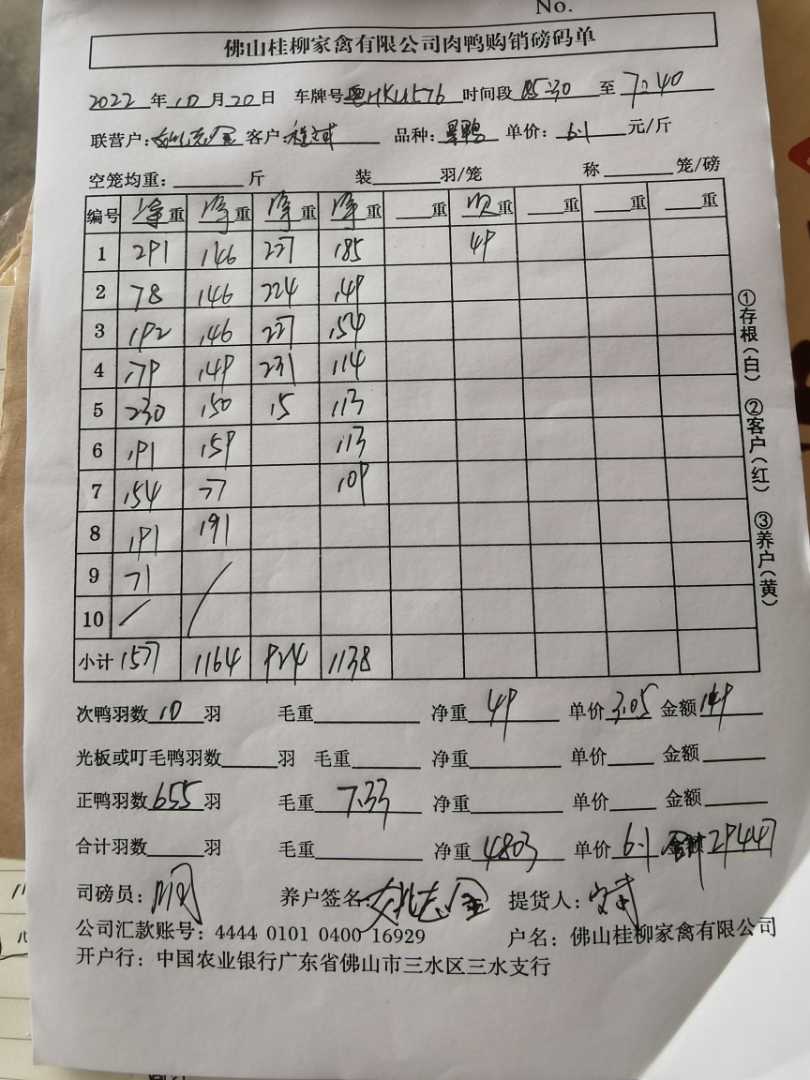 No.
佛山桂柳家禽有限公司肉鸭购销磅码单
2022 年 10 月 20 日 车牌号 粤HKU576 时间段 05:30 至 7:40
联营户: 客户: 程斌 品种: 黑鸭 单价: 6.1 元/斤
空笼均重: 斤 装 羽/笼 称 笼/磅
编号 净重 净重 净重 净重 重 次重 重 重 重
1 291 146 227 185 49
2 78 146 224 149
3 192 146 227 154
4 179 149 231 114
5 230 150 15 113
6 191 159 113
7 154 77 109
8 191 191
9 71
10
小计 1577 1164 924 1138
①存根(白) ②客户(红) ③养户(黄)
次鸭羽数 10 羽 毛重 净重 49 单价 3.05 金额 149
光板或叮毛鸭羽数 羽 毛重 净重 单价 金额
正鸭羽数 655 羽 毛重 7.33 净重 单价 金额
合计羽数 羽 毛重 净重 4803 单价 6.1 29447
司磅员: 养户签名: 提货人:
公司汇款账号: 4444 0101 0400 16929 户名: 佛山桂柳家禽有限公司
开户行: 中国农业银行广东省佛山市三水区三水支行